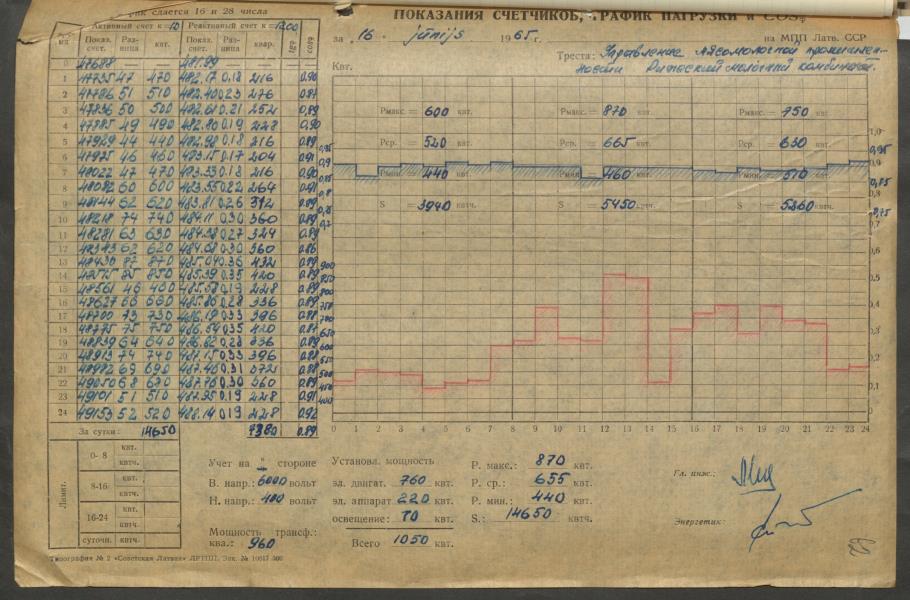 рафик сдается 16 и 28 числа
ПОКАЗАНИЯ СЧЕТЧИКОВ, ГРАФИК НАГРУЗКИ и COSφ
за „16“ jūnijs 1965 г.
на МПП Латв. ССР
Треста: Управление мясомолочной промышлен-
ности Рижский молочный комбинат.
Активный счет к=10 Реактивный счет к=1200
Показ. счет. Разница квт. Показ. счет. Разница квар. tgφ cosφ
0 47688 — — 481.99
1 47735 47 470 482.17 0.18 216 0.90
2 47786 51 510 482.40 0.23 276 0.87
3 47836 50 500 482.61 0.21 252 0.89
4 47885 49 490 482.80 0.19 228 0.90
5 47929 44 440 482.98 0.18 216 0.89
6 47975 46 460 483.15 0.17 204 0.91
7 48022 47 470 483.33 0.18 216 0.90
8 48082 60 600 483.55 0.22 264 0.91
9 48144 62 620 483.81 0.26 312 0.89
10 48218 74 740 484.11 0.30 360 0.89
11 48281 63 630 484.38 0.27 324 0.89
12 48343 62 620 484.68 0.30 360 0.86
13 48430 87 870 485.04 0.36 432 0.89
14 48515 85 850 485.39 0.35 420 0.89
15 48561 46 460 485.58 0.19 228 0.89
16 48627 66 660 485.86 0.28 336 0.89
17 48700 73 730 486.19 0.33 396 0.88
18 48775 75 750 486.54 0.35 420 0.87
19 48839 64 640 486.82 0.28 336 0.89
20 48913 74 740 487.15 0.33 396 0.88
21 48982 69 690 487.46 0.31 372 0.88
22 49050 68 680 487.76 0.30 360 0.89
23 49101 51 510 487.95 0.19 228 0.91
24 49153 52 520 488.14 0.19 228 0.92
За сутки: 14650 7380 0.89
Квт.
Рмакс. = 600 квт. Рмакс. = 870 квт. Рмакс. = 750 квт.
Рср. = 520 квт. Рср. = 665 квт. Рср. = 630 квт.
Рмин. = 440 квт. Рмин. = 460 квт. Рмин. = 510 квт.
S = 3940 квтч. S = 5450 квтч. S = 5260 квтч.
0,95 0,9 0,85 0,8 0,7
900 850 800 750 700 650 600 550 500 450 400
1,0 0,95 0,9 0,85 0,8 0,75 0,7 0,6 0,5 0,4 0,3 0,2 0,1 0
0 1 2 3 4 5 6 7 8 9 10 11 12 13 14 15 16 17 18 19 20 21 22 23 24
Лимит.
0- 8 квт.
квтч.
8-16 квт.
квтч.
16-24 квт.
квтч.
суточн. квтч.
Учет на „ “ стороне
В. напр.: 6000 вольт
Н. напр.: 400 вольт
Мощность трансф.:
ква.: 960
Установл. мощность
эл. двигат. 760 квт.
эл. аппарат 220 квт.
освещение: 70 квт.
Всего 1050 квт.
Р. макс.: 870 квт.
Р. ср.: 655 квт.
Р. мин.: 440 квт.
S.: 14650 квтч.
Гл. инж.:
Энергетик:
Типография № 2 «Советская Латвия» ЛРТПП. Зак. № 10617-500